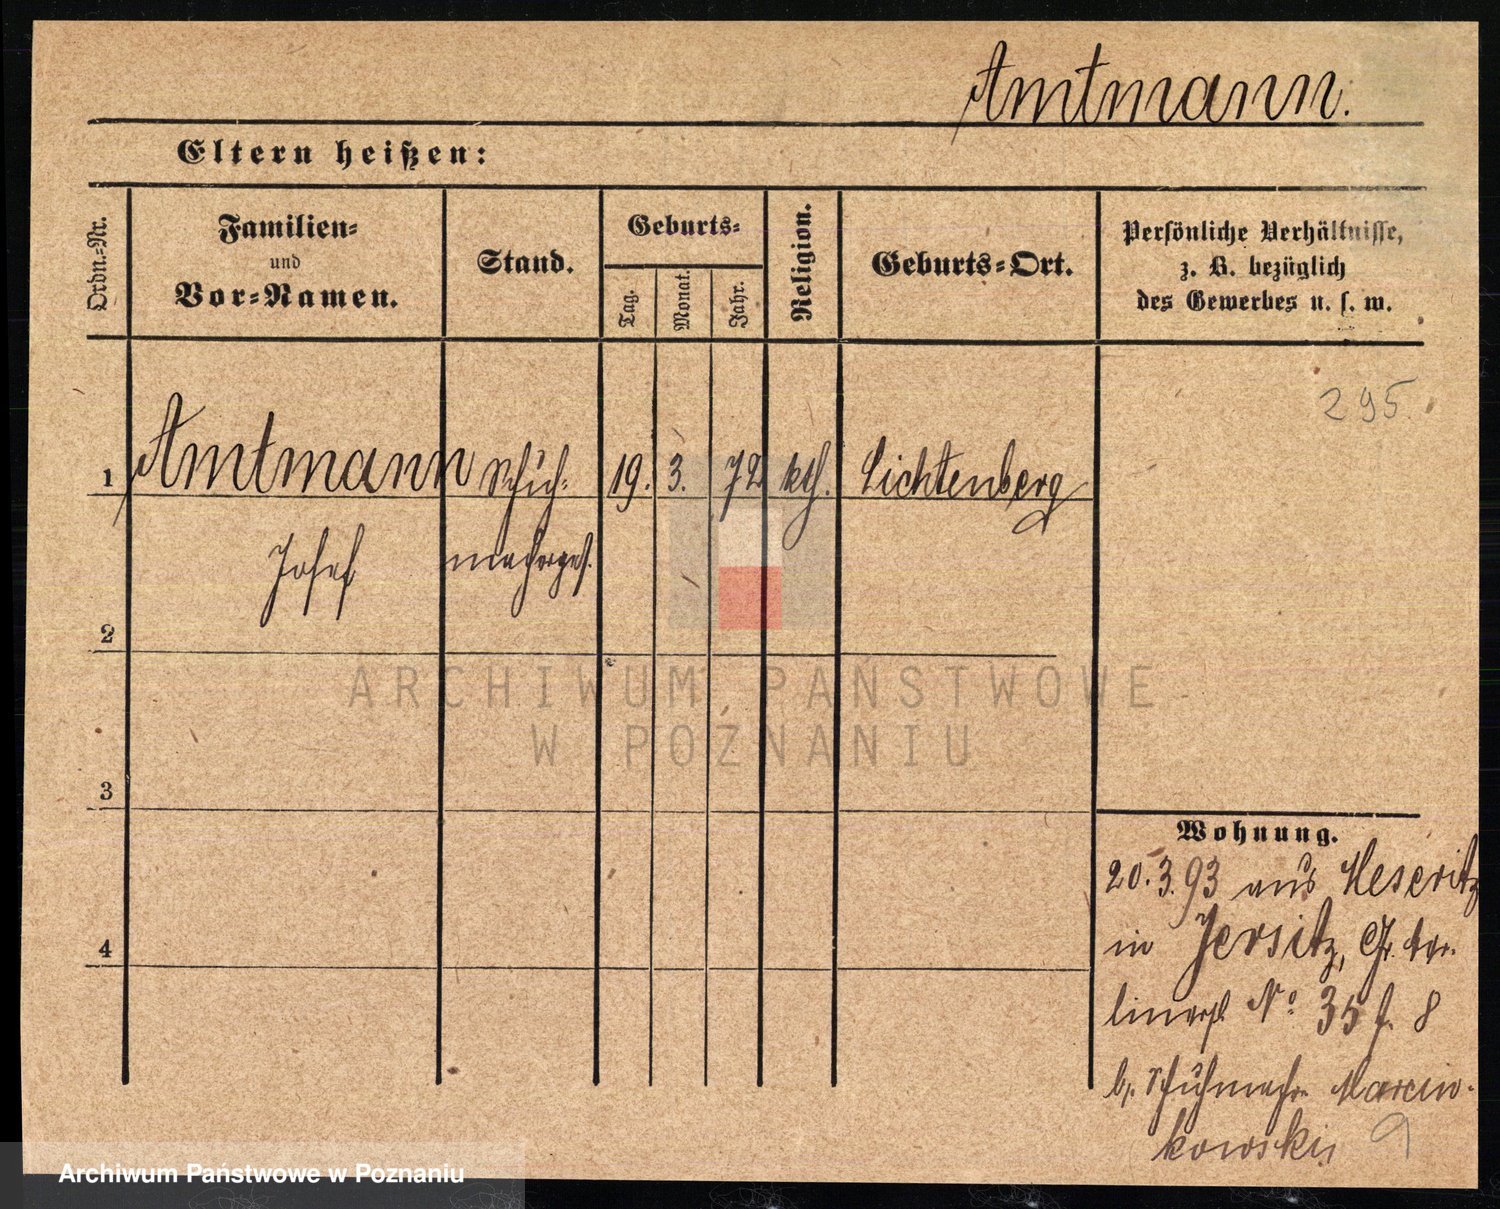 Amtmann.
Eltern heißen:
Ordn.-Nr.
Familien-
und
Vor-Namen.
Stand.
Geburts-
Tag.
Monat.
Jahr.
Religion.
Geburts-Ort.
Persönliche Verhältnisse,
z. B. bezüglich
des Gewerbes u. s. w.
295.
1 Amtmann Schuh- 19. 3. 72 kth. Lichtenberg
Josef machergs.
2
ARCHIWUM PAŃSTWOWE
W POZNANIU
3
Wohnung.
20.3.93 aus Meseritz
in Jersitz, Gr. Ber-
linerst No 35 f. 8
b. Schuhmachr Marcin-
kowski
9
4
Archiwum Państwowe w Poznaniu